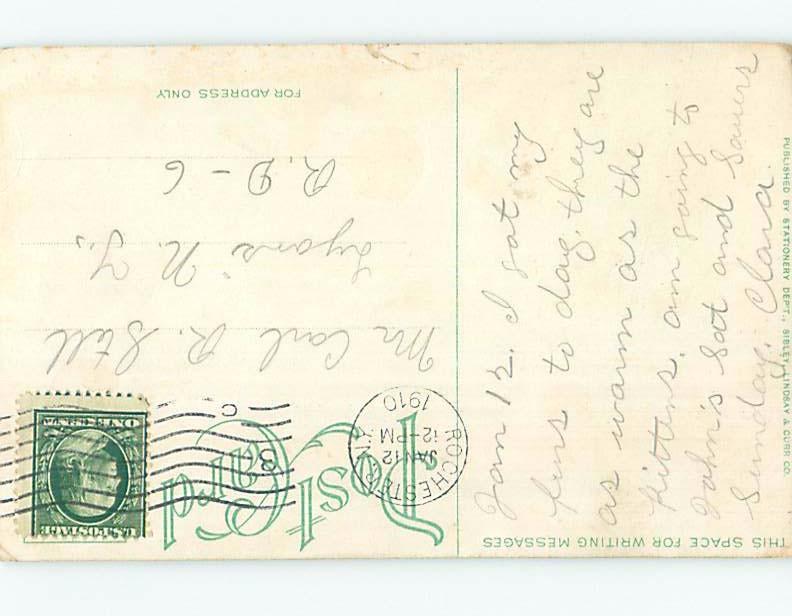 THIS SPACE FOR WRITING MESSAGES
Post Card
FOR ADDRESS ONLY
U.S. POSTAGE
ONE CENT
ROCHESTER, N.Y.
JAN 12
12-PM
1910
B
C
Jan 12. I got my
furs to day, they are
as warm as the
kittens. am going to
John's Sat and Sauers
Sunday. Clara.
Mr Carl R. Still
Lyons N. Y.,
R. D - 6
PUBLISHED BY STATIONERY DEPT., SIBLEY, LINDSAY & CURR CO.